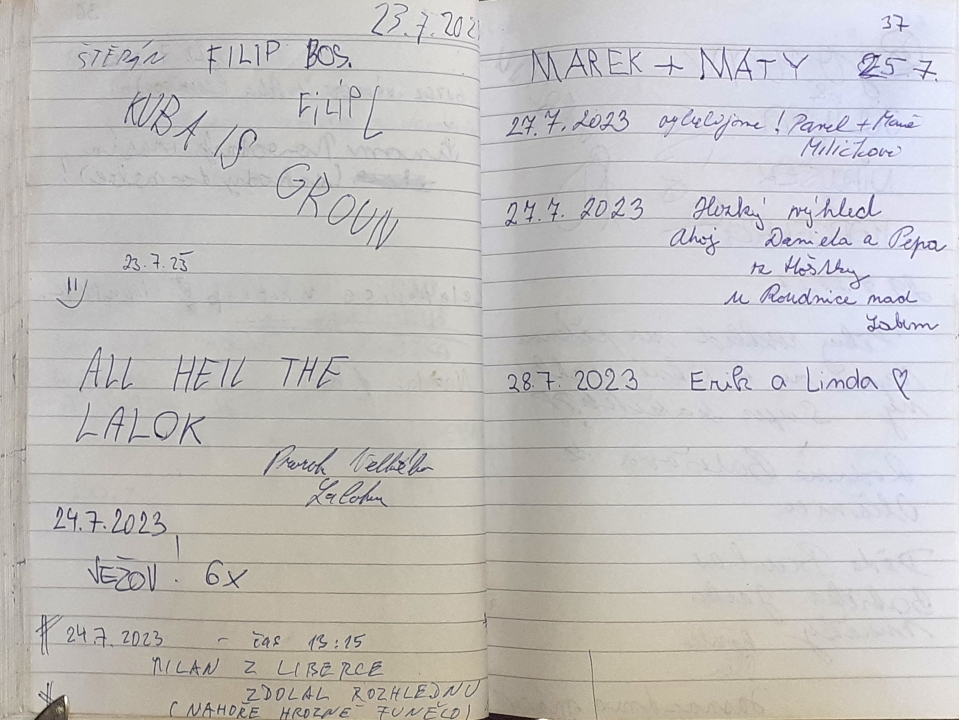 23.7.202
ŠTĚPÁN FILIP BOS.
KUBA IS FILIP L
GROUN
23.7.23
ALL HEIL THE
LALOK
Prorok Velkého
Laloku
24.7.2023
JEŽOV. 6x
24.7.2023 - čas 13:15
MILAN Z LIBERCE
ZDOLAL ROZHLEDNU
(NAHOŘE HROZNĚ FUNĚLO)
37
MAREK + MATY 25.7.
27.7.2023 Pavel +
Miličkovi
27.7. 2023 Hezký výhled
Ahoj Daniela a Pepa
z Hoštky
u Roudnice nad
Labem
28.7. 2023 Erik a Linda ♡